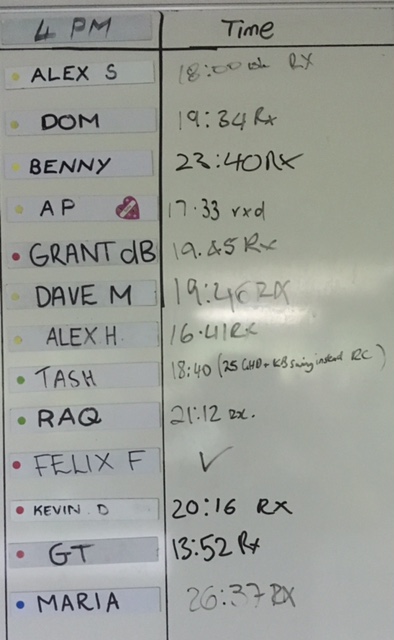 4 PM Time
ALEX S 18:00 RX
DOM 19:34 Rx
BENNY 23:40 RX
AP 17:33 rxd
GRANT dB 19.45 Rx
DAVE M 19:46 RX
ALEX H. 16.41 RX
TASH 18:40 (25 GHD + KB swing instead RC)
RAQ 21:12 RX.
FELIX F ✓
KEVIN D 20:16 RX
GT 13:52 Rx
MARIA 26:37 RX